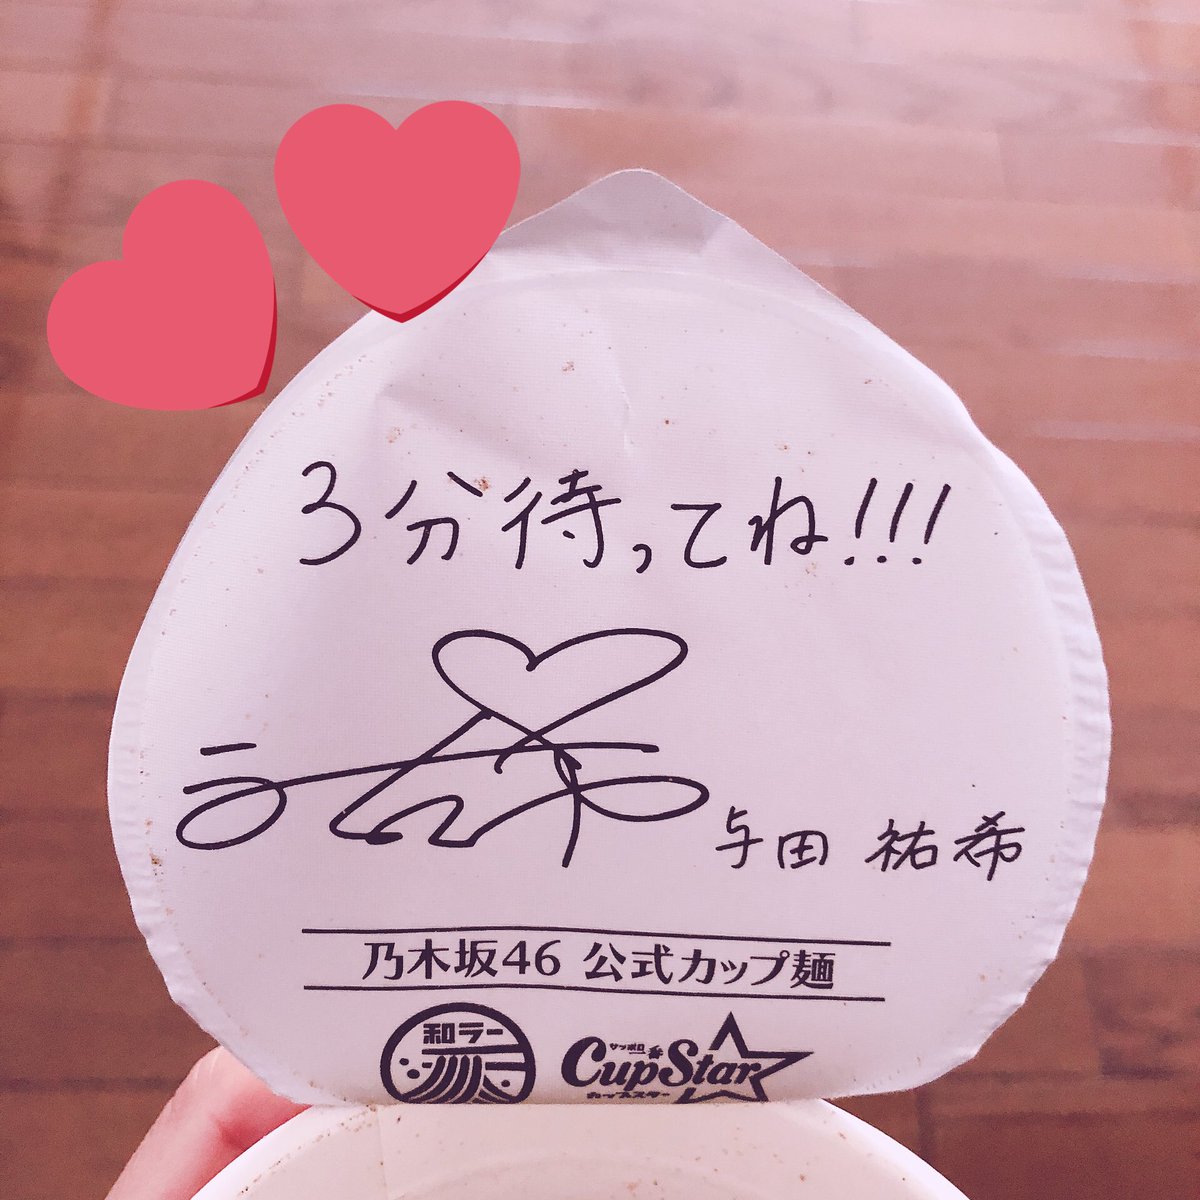 3分待ってね!!!
与田 祐希
乃木坂46 公式カップ麺
和ラー
サッポロ一番
CupStar
カップスター